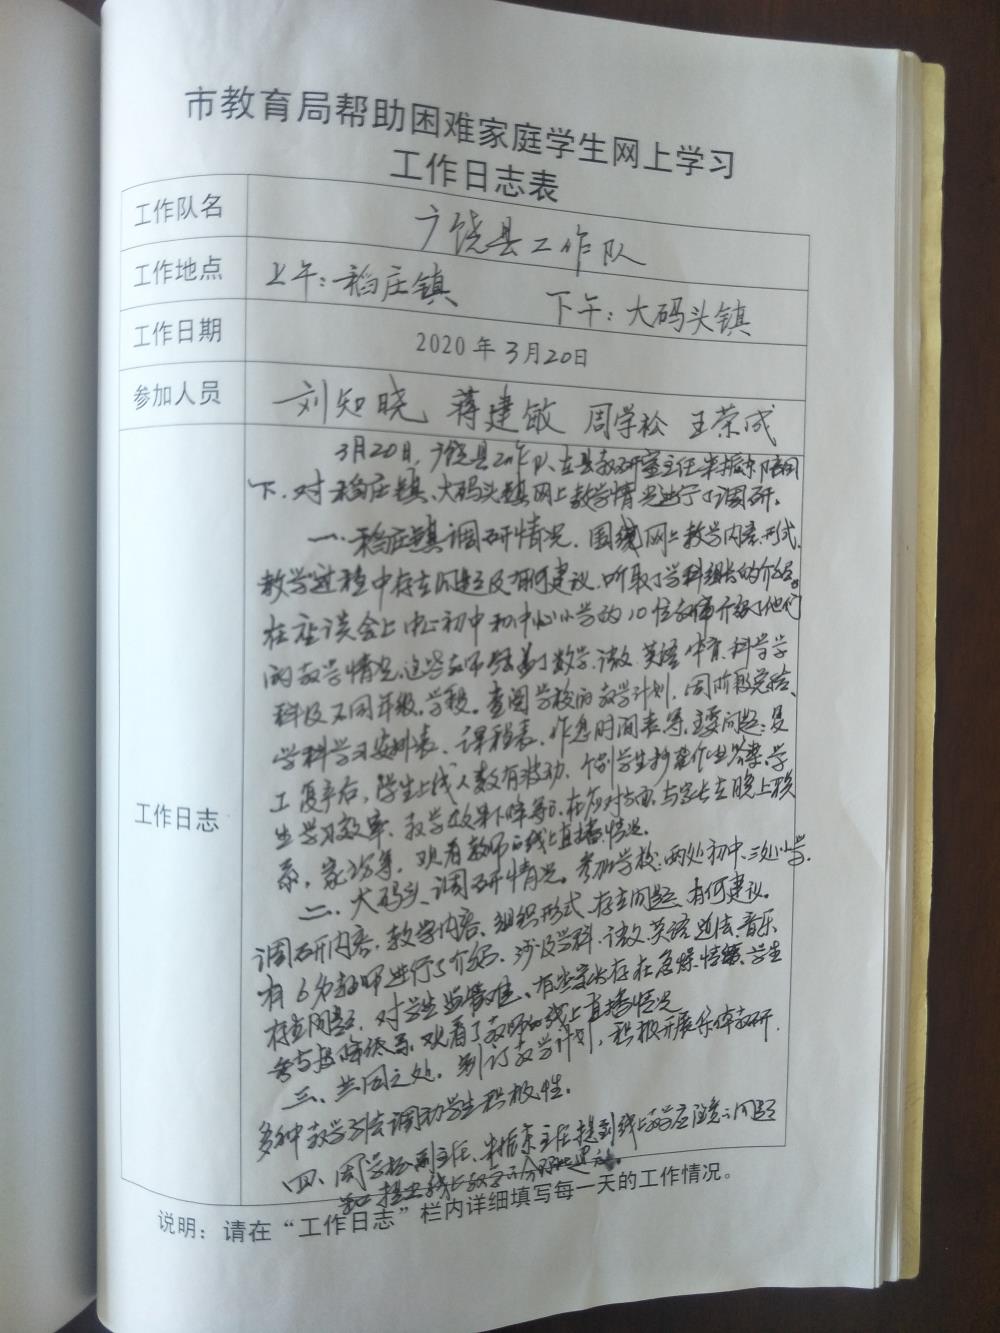 市教育局帮助困难家庭学生网上学习
工作日志表
工作队名 广饶县工作队
工作地点 上午：稻庄镇 下午：大码头镇
工作日期 2020年3月20日
参加人员 刘知晓 蒋建敏 周学松 王荣成
工作日志
3月20日，广饶县工作队在县教研室主任 振东陪同
下，对稻庄镇、大码头镇网上教学情况进行了调研。
一、稻庄镇调研情况。围绕网上教学内容、形式、
教学过程中存在问题及有何建议，听取了学科组长的介绍。
在座谈会上中心初中和中心小学的10位教师介绍了他们
的教学情况，这些教师 盖了数学、语文、英语、体育、科学等学
科及不同年级、学段。查阅学校的教学计划、周 阶段
学科学习安排表、课程表、作息时间表等。主要问题：复
工复产后，学生上线人数有波动，个别学生抄袭作业答案，学
生学习效率、教学效果下降等。在应对方面，与家长在晚上联
系，家访等。观看教师的线上直播情况。
二、大码头调研情况。参加学校：两处初中、三处小学。
调研内容：教学内容、组织形式、存在问题、有何建议。
有6名教师进行了介绍，涉及学科：语文、英语、道法、音乐
存在问题，对学生监管难，有些家长存在急燥情绪，学生
参与 降低等。观看了教师的线上直播情况
三、共同之处。制订教学计划，积极开展集体教研，
多种教学方法调动学生积极性。
四、周学松副主任、 振东主任提到线上教学应注意的问题
和 线上教学
说明：请在“工作日志”栏内详细填写每一天的工作情况。